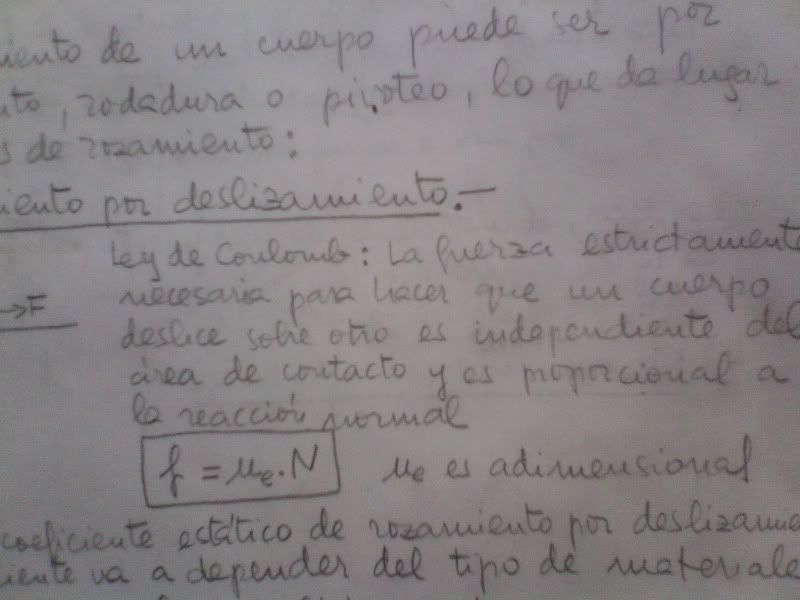 iento de un cuerpo puede ser por
nto, rodadura o pivoteo, lo que da lugar
s de rozamiento:
iento por deslizamiento.—
Ley de Coulomb: La fuerza estrictamente
→F necesaria para hacer que un cuerpo
deslice sobre otro es independiente del
área de contacto y es proporcional a
la reacción normal
f = μe·N μe es adimensional
coeficiente estático de rozamiento por deslizamie
iente va a depender del tipo de materiale